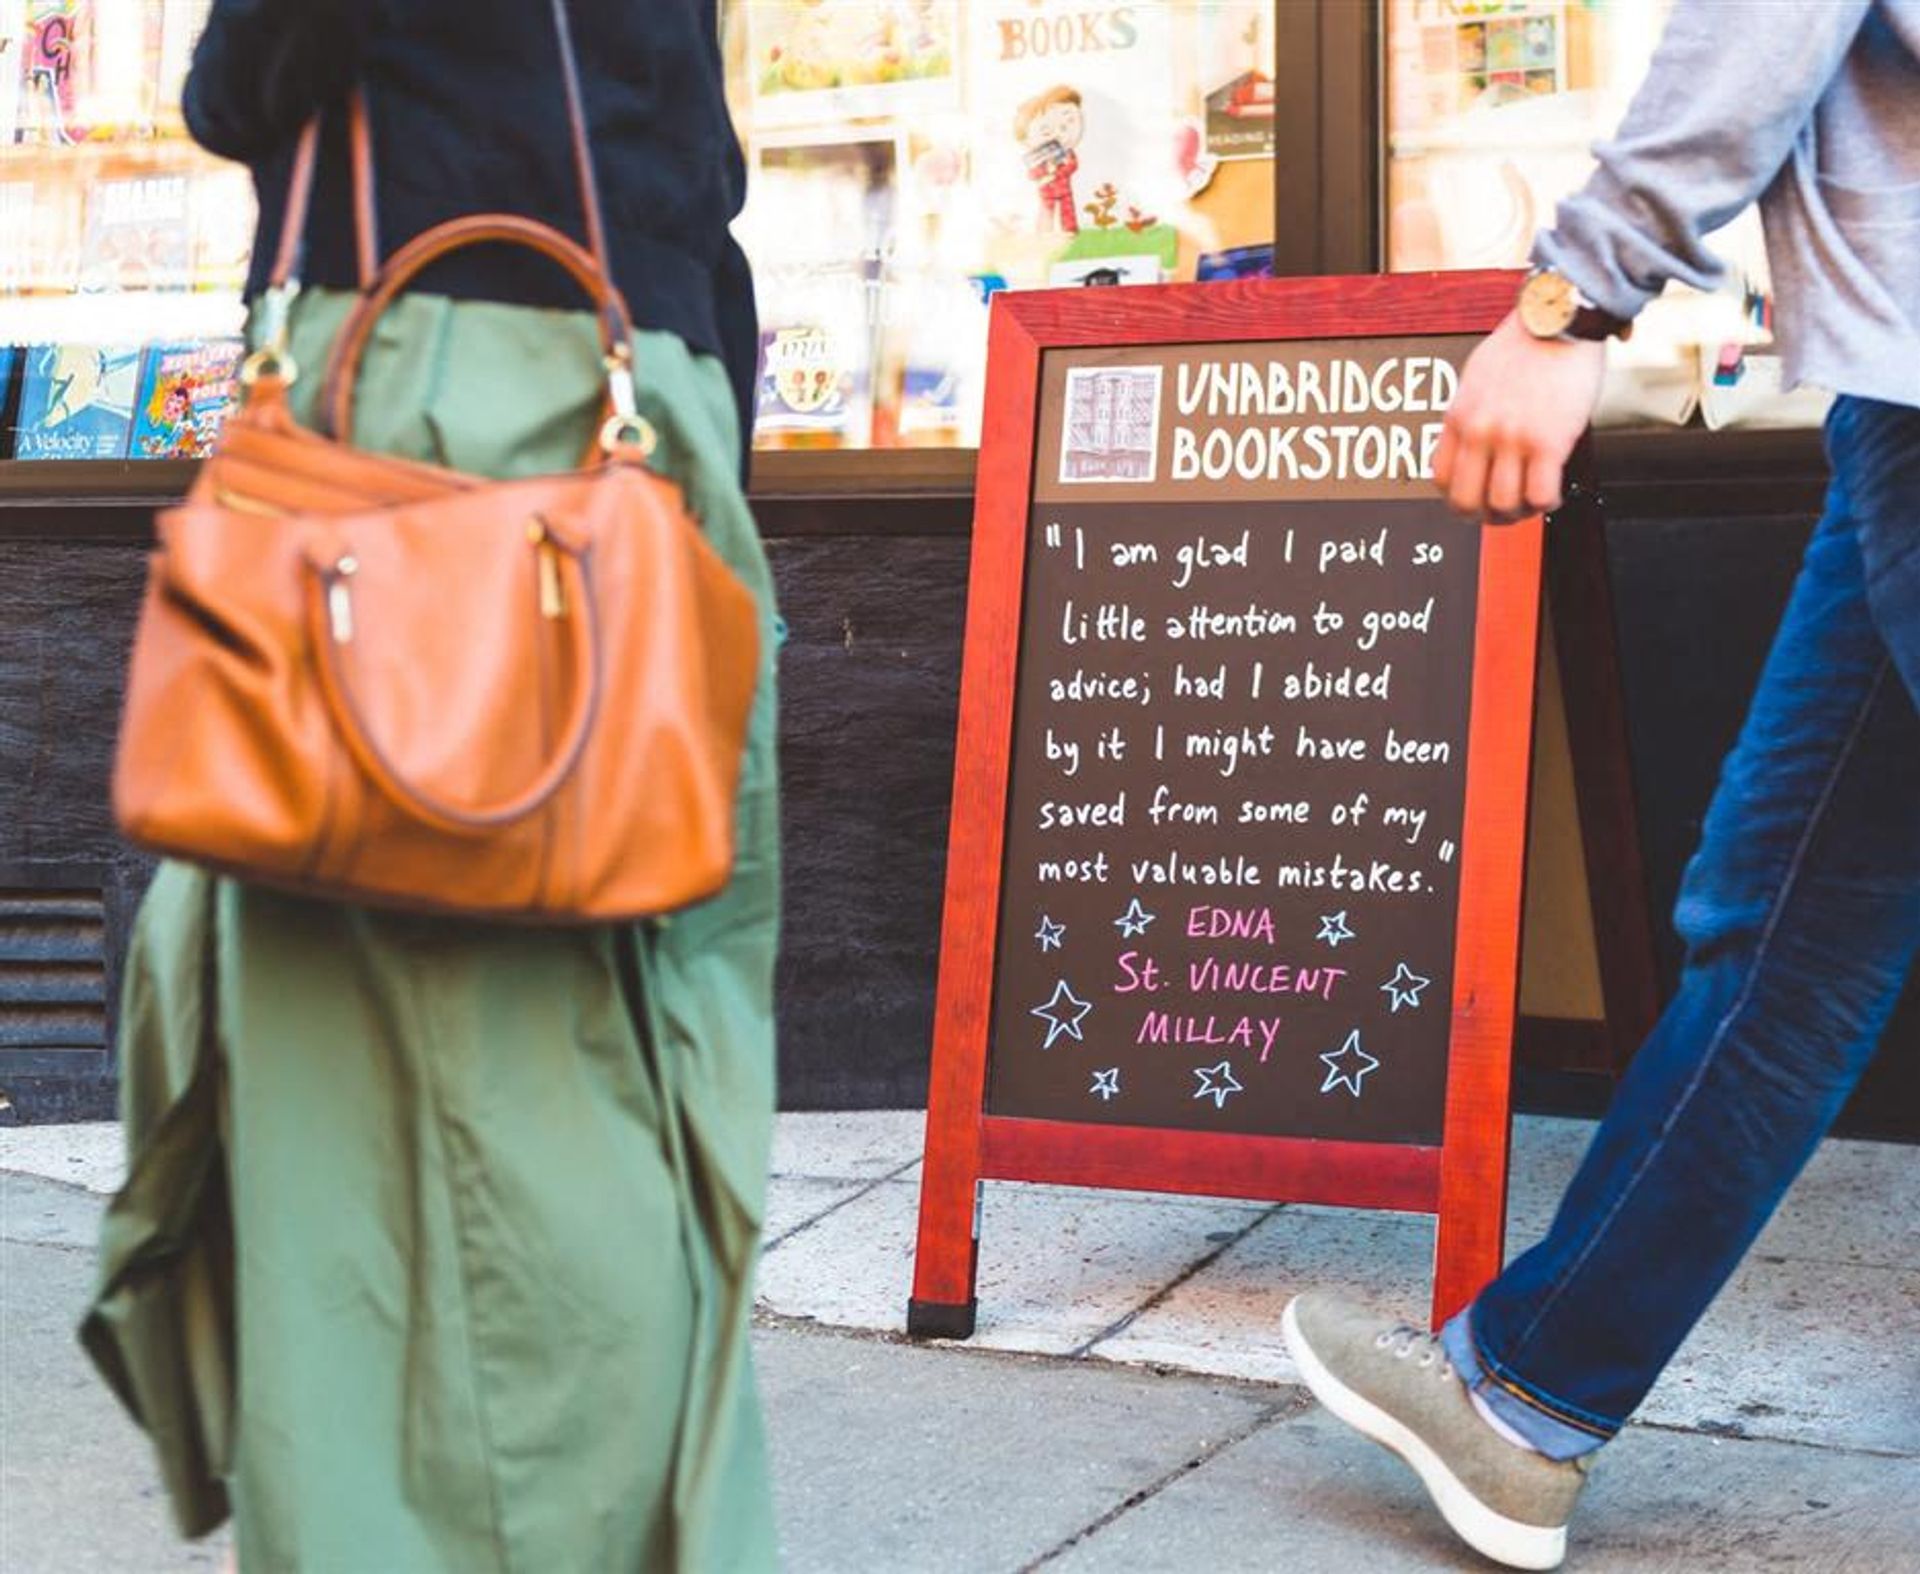 BOOKS
UNABRIDGED
BOOKSTORE
"I am glad I paid so
little attention to good
advice; had I abided
by it I might have been
saved from some of my
most valuable mistakes."
EDNA
St. VINCENT
MILLAY
A Velocity